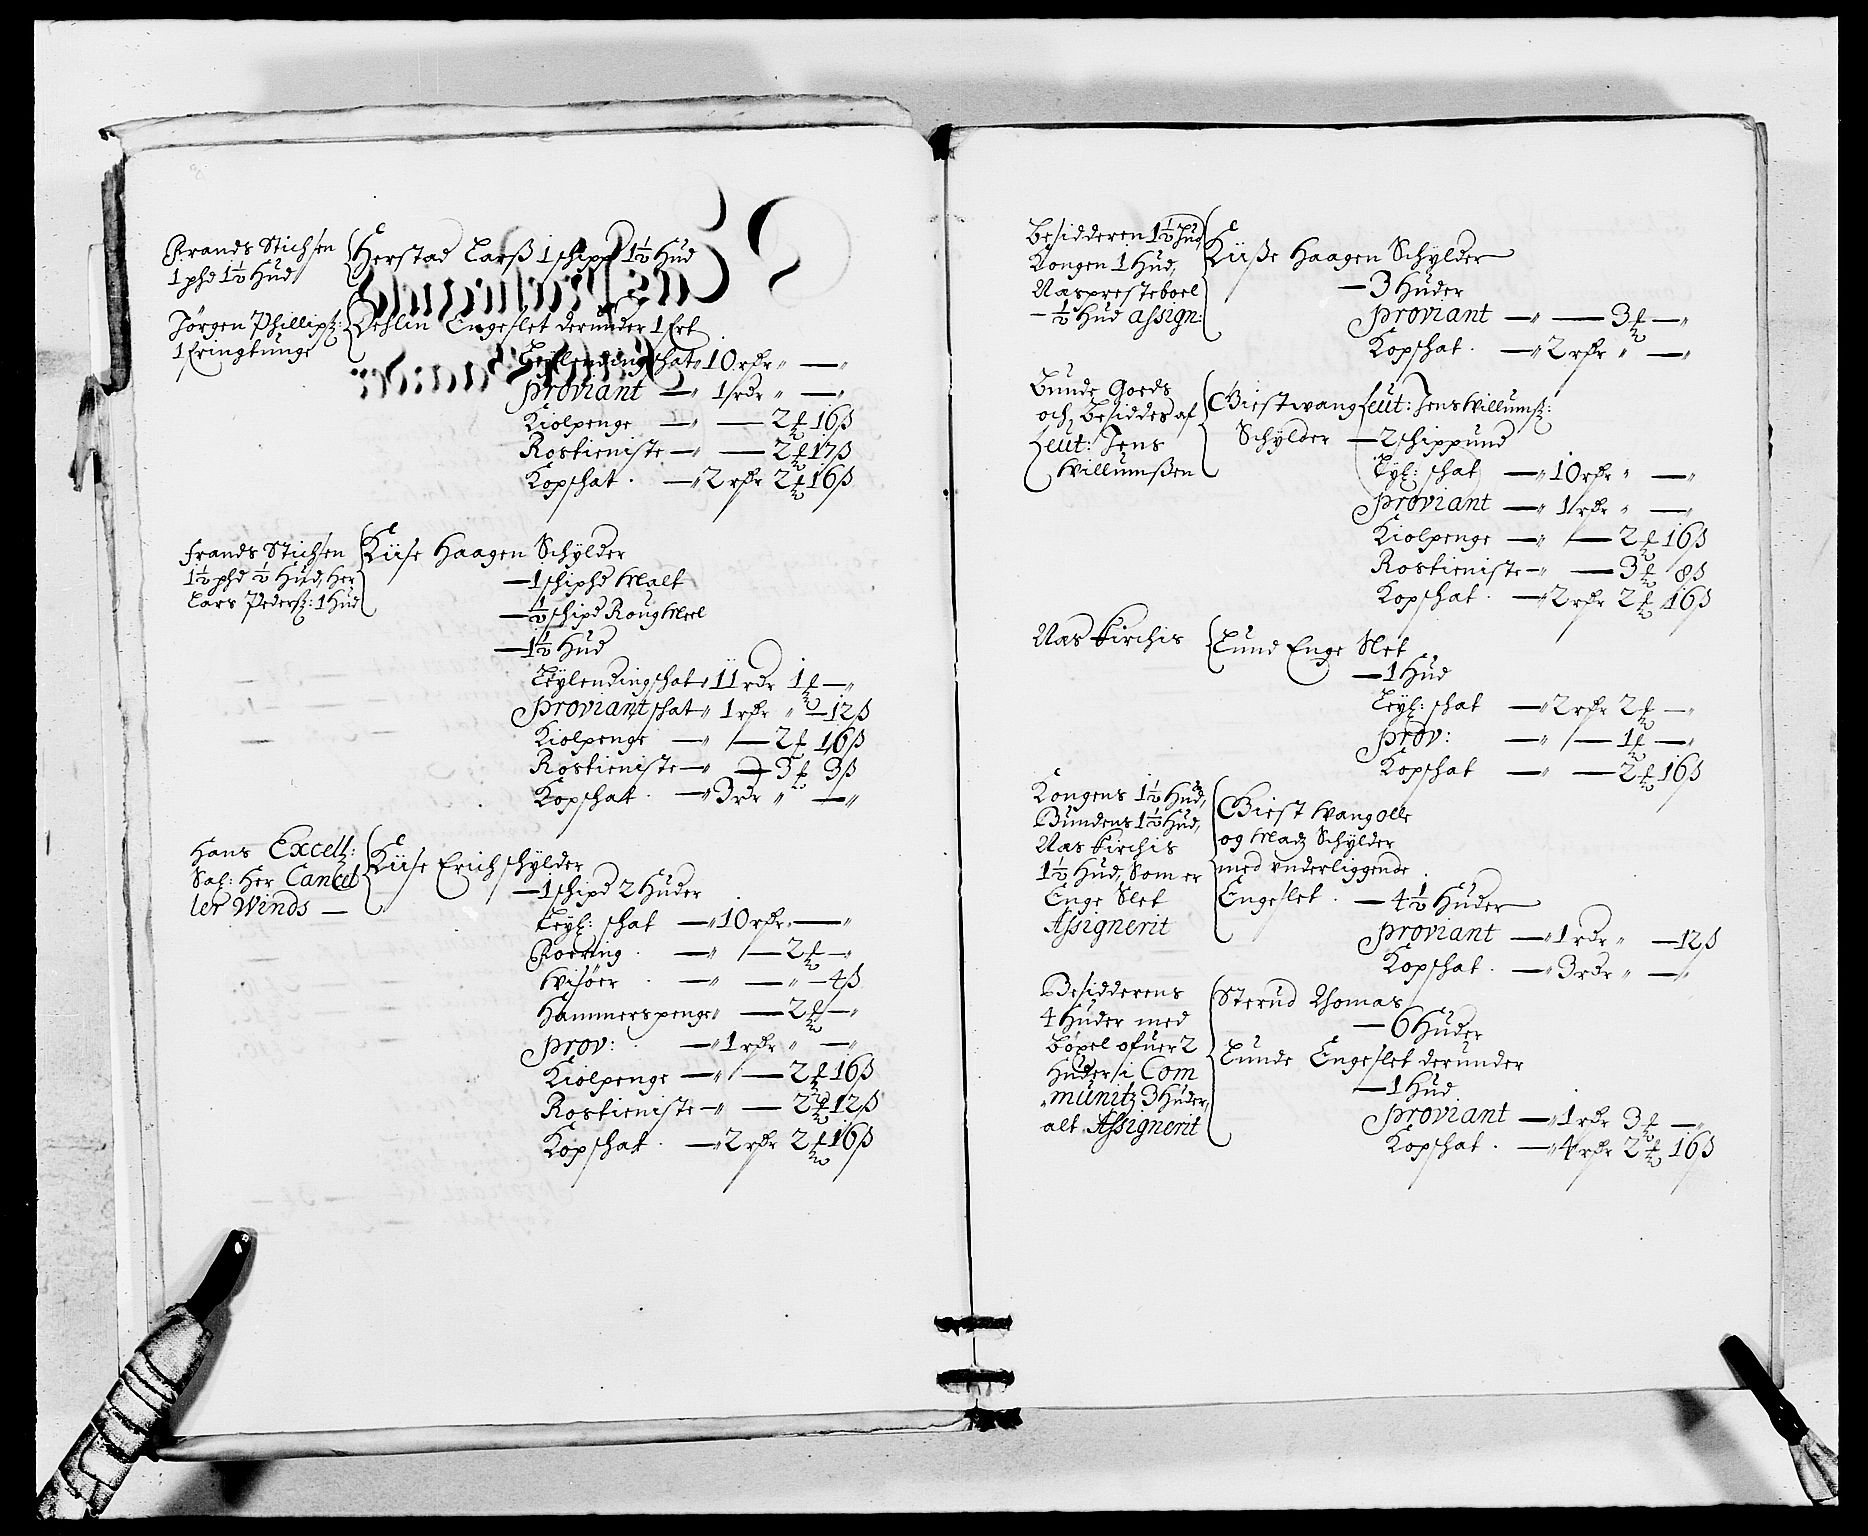 Frands Stichsen
1 phd 1½ Hud
Herstad Larß 1 schipp 1½ Hud
Jörgen Phillipß:
1 Fringtunge
Dehlin Engeslet derunder 1 Frt
Leylending schat 10 rdr " — "
Proviant — " 1 rdr " — "
Kiolpenge — " — 2 ℔ 16 ß
Rostieniste — " — 2 ℔ 17 ß
Kopschat . — " 2 rdr 2 ℔ 16 ß
Frands Stichsen
1½ phd ½ Hud, Her
Lars Pederß: 1 Hud
Kiise Haagen Schylder
— 1 schiphd Malt
— ½ schipd Roug Meel
— 1½ Hud
Leylending schat " 11 rdr 1 ℔ — "
Proviant schat " 1 rdr " — 12 ß
Kiolpenge — " — 2 ℔ 16 ß
Rostieniste — " — 3 ℔ 3 ß
Kopschat . — " 3 rdr " — "
Hans Excell:
Sal: Her Cancel
ler Winds —
Kiise Erich schylder
— 1 schipd 2 Huder
Leyl: schat — " 10 rdr " — "
Foering . — " — 2 ℔ — "
Wisöer . — " — " — 4 ß
Hammerspenge " — 2 ℔ — "
Prov: . — " 1 rdr " — "
Kiolpenge — " — 2 ℔ 16 ß
Rostieniste — " — 2 ℔ 12 ß
Kopschat . — " 2 rdr 2 ℔ 16 ß
Besidderen 1½ Hud
Kongen 1 Hud,
Næs presteboel
— ½ Hud Assign:
Kiiße Haagen Schylder
— 3 Huder
Proviant — " — 3 ℔ — "
Kopschat . — " 2 rdr " — "
Bunde Goeds
och Besiddes af
Leut: Jens
Willumßen
Giestwang Leut: Jens Willumß:
Schylder — 2 schippund
Leyl: schat — " 10 rdr " — "
Proviant — " 1 rdr " — "
Kiolpenge — " — 2 ℔ 16 ß
Rostieniste — " — 3 ℔ 8 ß
Kopschat . — " 2 rdr 2 ℔ 16 ß
Næs Kirchis
Lund Enge Slet
— 1 Hud
Leyl: schat — " 2 rdr 2 ℔ — "
Prov: — " — 1 ℔ — "
Kopschat — " — 2 ℔ 16 ß
Kongens 1½ Hud,
Bundens 1½ Hud,
Næs Kirchis
1½ Hud, Som er
Enge Slet
Assignerit
Giest Wang Olle
og Madz Schylder
med underliggende
Engeslet . — 4½ Huder
Proviant — " 1 rdr " — 12 ß
Kopschat . — " 3 rdr " — "
Besidderens
4 Huder med
Böxel ofuer 2
Huder i Com
munitz 3 Huder,
alt Assignerit
Sterud Thomas
— 6 Huder
Lunde Engeslet derunder
— 1 Hud
Proviant — " 1 rdr 3 ℔ — "
Kopschat . — " 4 rdr 2 ℔ 16 ß